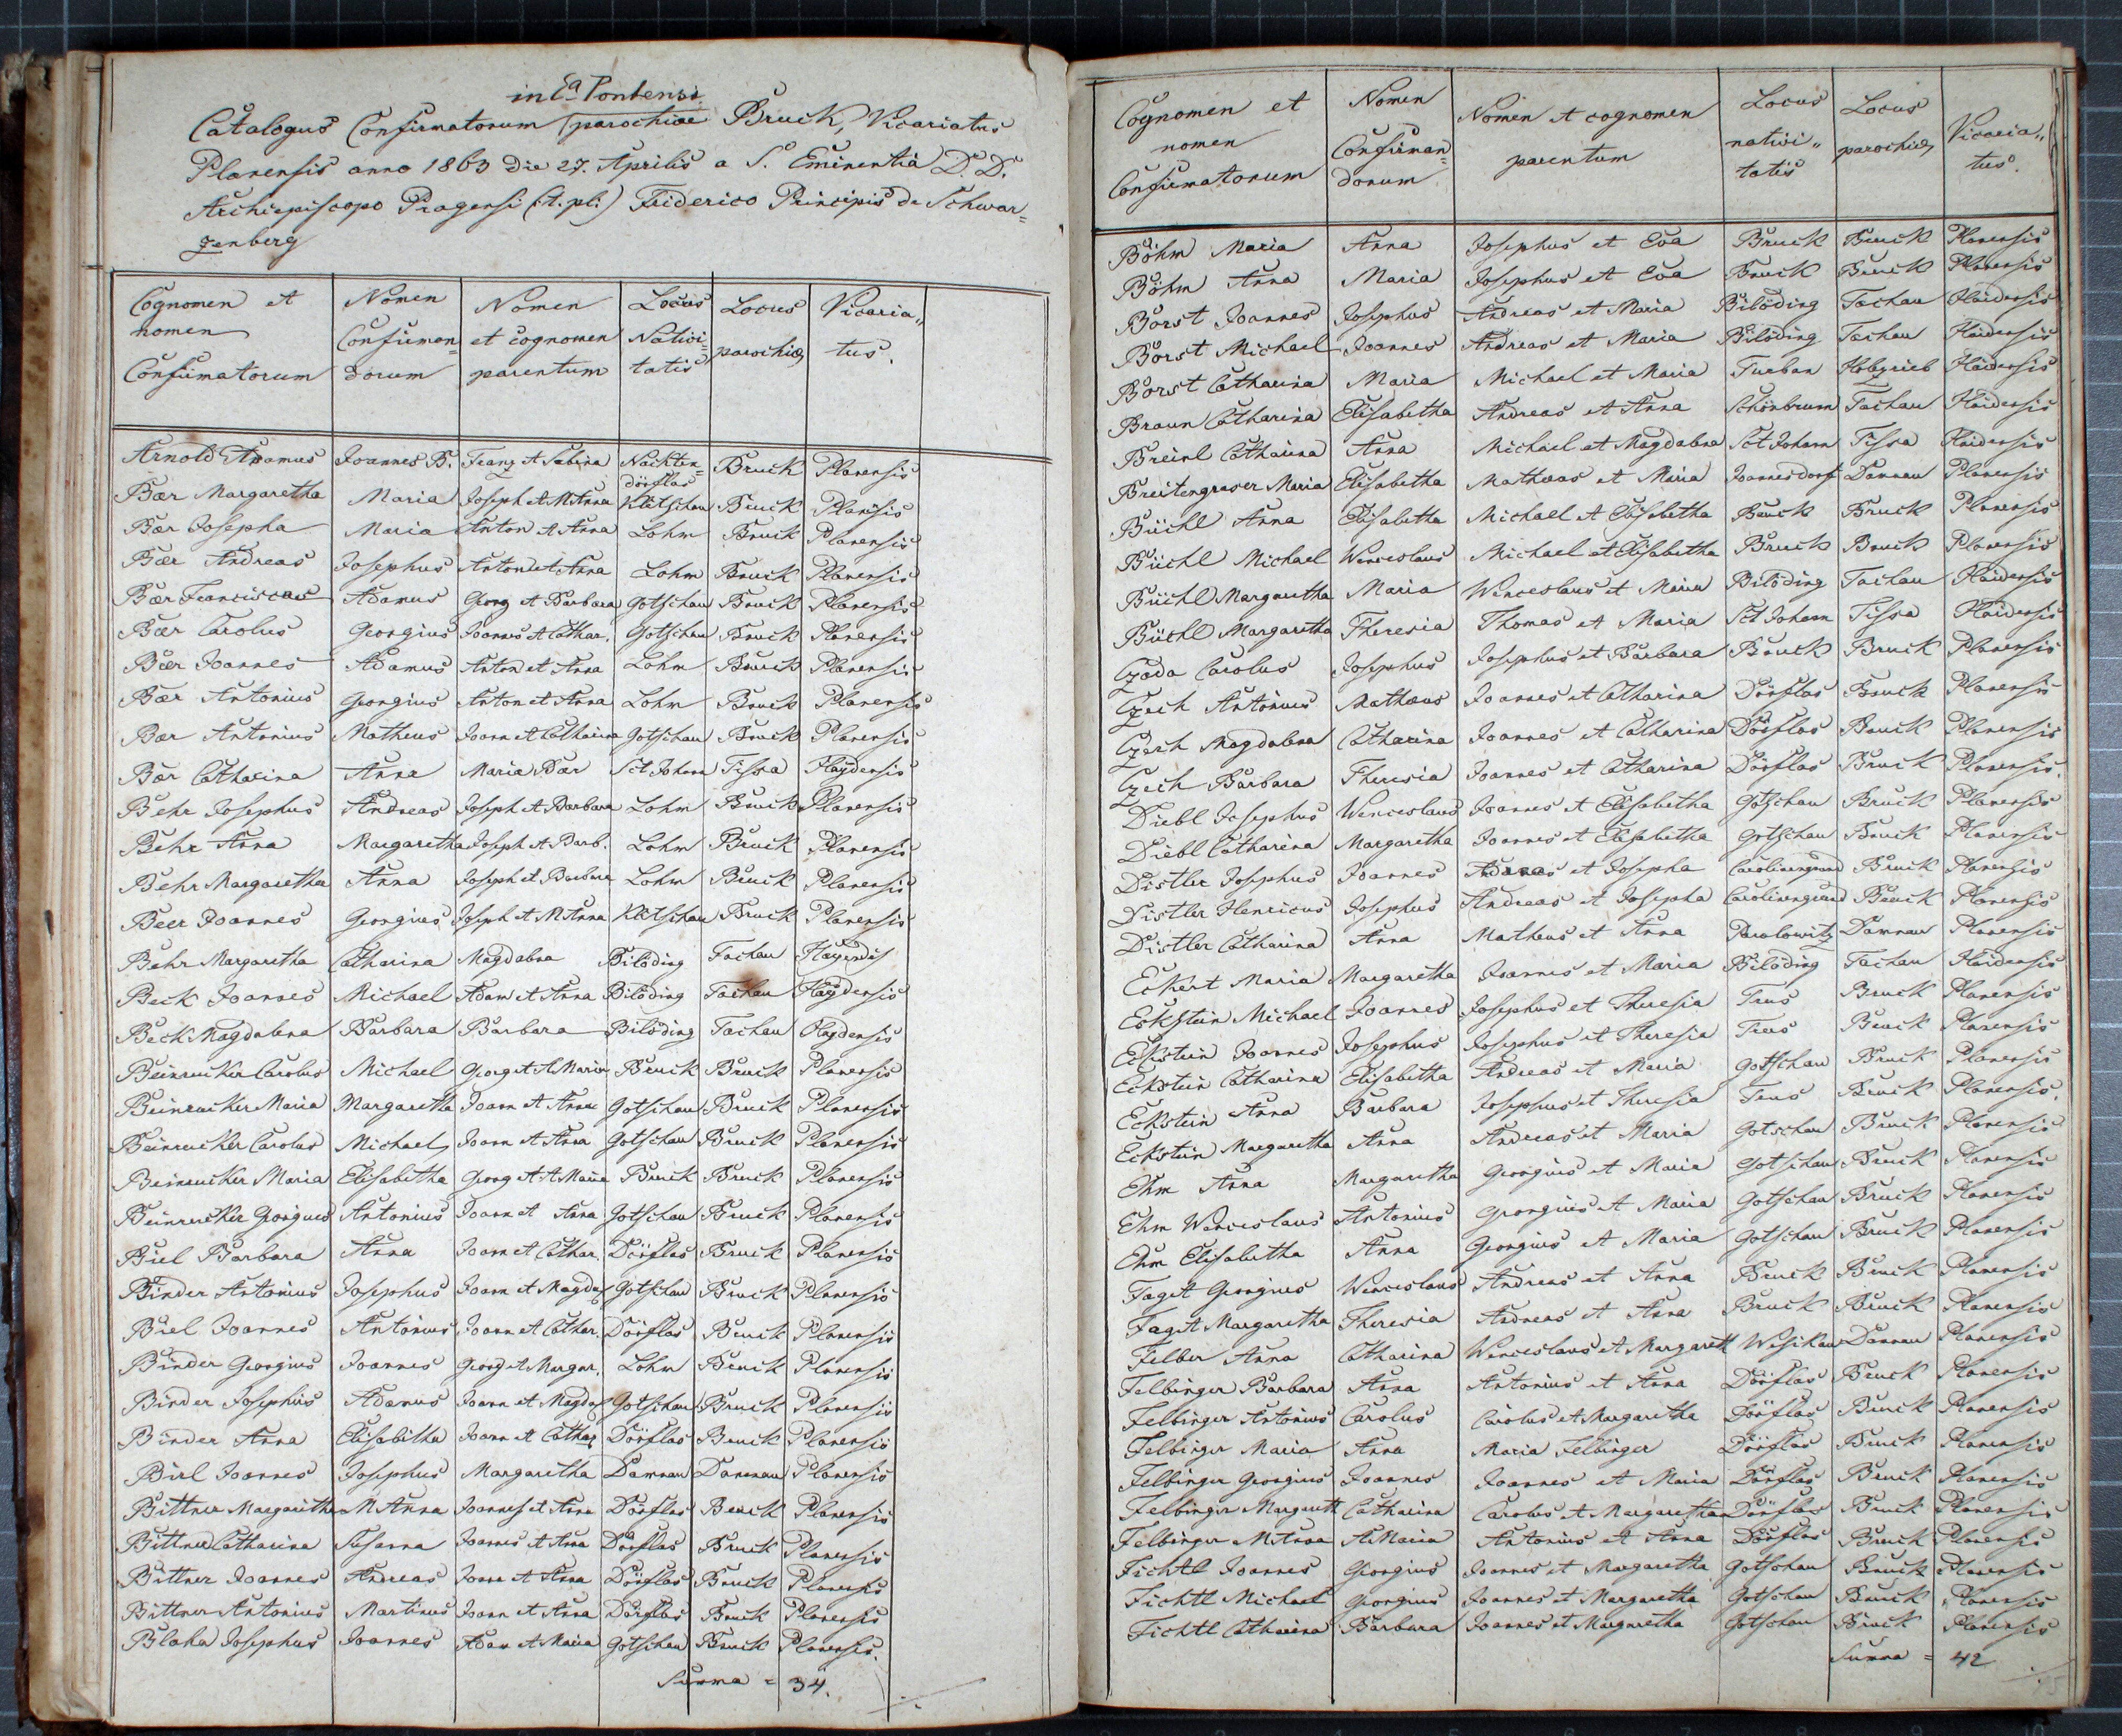 in Ea Pontensi
Catalogus Confirmatorum parochiae Bruck, Vicariatus
Planensis anno 1863 die 27. Aprilis a S. Eminentia D. D.
Archiepiscopo Pragensi (:t. pl:) Friderico Principis de Schwar=
zenberg
Cognomen et nomen Confirmatorum | Nomen Confirman=dorum | Nomen et cognomen parentum | Locus Nativi=tatis | Locus parochiae | Vicaria„tus.
Arnold Adamus Joannes B. Franz et Sabina Nachten=dörflas Bruck Planensis
Bær Margaretha Maria Joseph et M Anna Klitschau Bruck Planensis
Bær Josepha Maria Anton et Anna Lohm Bruck Planensis
Bær Andreas Josephus Anton et Anna Lohm Bruck Planensis
Bær Franciscus Adamus Georg et Barbara Gotschau Bruck Planensis
Bær Carolus Georgius Joannes et Cathar. Gotschau Bruck Planensis
Bær Joannes Adamus Anton et Anna Lohm Bruck Planensis
Bær Antonius Georgius Anton et Anna Lohm Bruck Planensis
Bær Antonius Matheus Joann et Catharina Gotschau Bruck Planensis
Bær Catharina Anna Maria Bær Sct Johann Tissa Haydensis
Behr Josephus Andreas Joseph et Barbara Lohm Bruck Planensis
Behr Anna Margaretha Joseph et Barb. Lohm Bruck Planensis
Behr Margaretha Anna Joseph et Barbara Lohm Bruck Planensis
Beer Joannes Georgius Joseph et M Anna Klitschau Bruck Planensis
Behr Margaretha Catharina Magdalena Bilöding Tachau
Beck Joannes Michael Adam et Anna Bilöding Tachau Haydensis
Beck Magdalena Barbara Barbara Bilöding Tachau Haydensis
Beinrucker Carolus Michael Georg et A Maria Bruck Bruck Planensis
Beinrucker Maria Margaretha Joann et Anna Gotschau Bruck Planensis
Beinrucker Carolus Michael Joann et Anna Gotschau Bruck Planensis
Beinrucker Maria Elisabetha Georg et A Maria Bruck Bruck Planensis
Beinrucker Georgius Antonius Joann et Anna Gotschau Bruck Planensis
Biel Barbara Anna Joann et Cathar. Dörflas Bruck Planensis
Binder Antonius Josephus Joann et Magda Gotschau Bruck Planensis
Biel Joannes Antonius Joann et Cathar. Dörflas Bruck Planensis
Binder Georgius Joannes Georg et Margar. Lohm Bruck Planensis
Binder Josephus Adamus Joann et Magda Gotschau Bruck Planensis
Binder Anna Elisabetha Joann et Cathar Dörflas Bruck Planensis
Birl Joannes Josephus Margaretha Damnau Damnau Planensis
Bittner Margaretha M Anna Joannes et Anna Dörflas Bruck Planensis
Bittner Catharina Susanna Joannes et Anna Dörflas Bruck Planensis
Bittner Joannes Andreas Joann et Anna Dörflas Bruck Planensis
Bittner Antonius Martinus Joann et Anna Dörflas Bruck Planensis
Blaha Josephus Joannes Adam et Maria Gotschau Bruck Planensis.
Summa = 34.
Cognomen et nomen Confirmatorum | Nomen Confirman=dorum | Nomen et cognomen parentum | Locus nativi„tatis | Locus parochiae | Vicaria„tus.
Böhm Maria Anna Josephus et Eva Bruck Bruck Planensis
Böhm Anna Maria Josephus et Eva Bruck Bruck Planensis
Borst Joannes Josephus Andreas et Maria Bilöding Tachau Haidensis
Borst Michael Joannes Andreas et Maria Bilöding Tachau Haidensis
Borst Catharina Maria Michael et Maria Turban Hals Haidensis
Braun Catharina Elisabetha Andreas et Anna Schönbrunn Tachau Haidensis
Breinl Catharina Anna Michael et Magdalena Sct Johann Tissa Haidensis
Breitengraser Maria Elisabetha Mathæas et Maria Joannesdorf Damnau Planensis
Büchl Anna Elisabetha Michael et Elisabetha Bruck Bruck Planensis
Büchl Michael Wenceslaus Michael et Elisabetha Bruck Bruck Planensis
Büchl Margaretha Maria Wenceslaus et Maria Bilöding Tachau Haidensis
Büchl Margaretha Theresia Thomas et Maria Sct Johann Tissa Haidensis
Czada Carolus Josephus Josephus et Barbara Bruck Bruck Planensis
Czech Antonius Mathæus Joannes et Catharina Dörflas Bruck Planensis
Czech Magdalena Catharina Joannes et Catharina Dörflas Bruck Planensis
Czech Barbara Theresia Joannes et Catharina Dörflas Bruck Planensis.
Diebl Josephus Wenceslaus Joannes et Elisabetha Gotschau Bruck Planensis
Diebl Catharina Margaretha Joannes et Elisabetha Gotschau Bruck Planensis
Distler Josephus Joannes Andreas et Josepha Carolinengrund Bruck Planensis
Distler Henricus Josephus Andreas et Josepha Carolinengrund Bruck Planensis
Distler Catharina Anna Matheus et Anna Pawlowitz Damnau Planensis
Eckert Maria Margaretha Joannes et Maria Bilöding Tachau Haidensis
Eckstein Michael Joannes Josephus et Theresia Trus Bruck Planensis
Eckstein Joannes Josephus Josephus et Theresia Trus Bruck Planensis
Eckstein Catharina Elisabetha Andreas et Maria Gotschau Bruck Planensis
Eckstein Anna Barbara Josephus et Theresia Trus Bruck Planensis.
Eckstein Margaretha Anna Andreas et Maria Gotschau Bruck Planensis
Ehm Anna Margaretha Georgius et Maria Gotschau Bruck Planensis
Ehm Wenceslaus Antonius Georgius et Maria Gotschau Bruck Planensis
Ehm Elisabetha Anna Georgius et Maria Gotschau Bruck Planensis
Faget Georgius Wenceslaus Andreas et Anna Bruck Bruck Planensis
Faget Margaretha Theresia Andreas et Anna Bruck Bruck Planensis
Felber Anna Catharina Wenceslaus et Margareth Wesikau Damnau Planensis
Felbinger Barbara Anna Antonius et Anna Dörflas Bruck Planensis
Felbinger Antonius Carolus Carolus et Margaretha Dörflas Bruck Planensis
Felbinger Maria Anna Maria Felbinger Dörflas Bruck Planensis
Felbinger Georgius Joannes Joannes et Maria Dörflas Bruck Planensis
Felbinger Margareth Catharina Carolus et Margaretha Dörflas Bruck Planensis
Felbinger M Anna A Maria Antonius et Anna Dörflas Bruck Planensis
Fichtl Joannes Georgius Joannes et Margaretha Gotschau Bruck Planensis
Fichtl Michael Georgius Joannes et Margaretha Gotschau Bruck Planensis
Fichtl Catharina Barbara Joannes et Margaretha Gotschau Bruck Planensis
Summa = 42